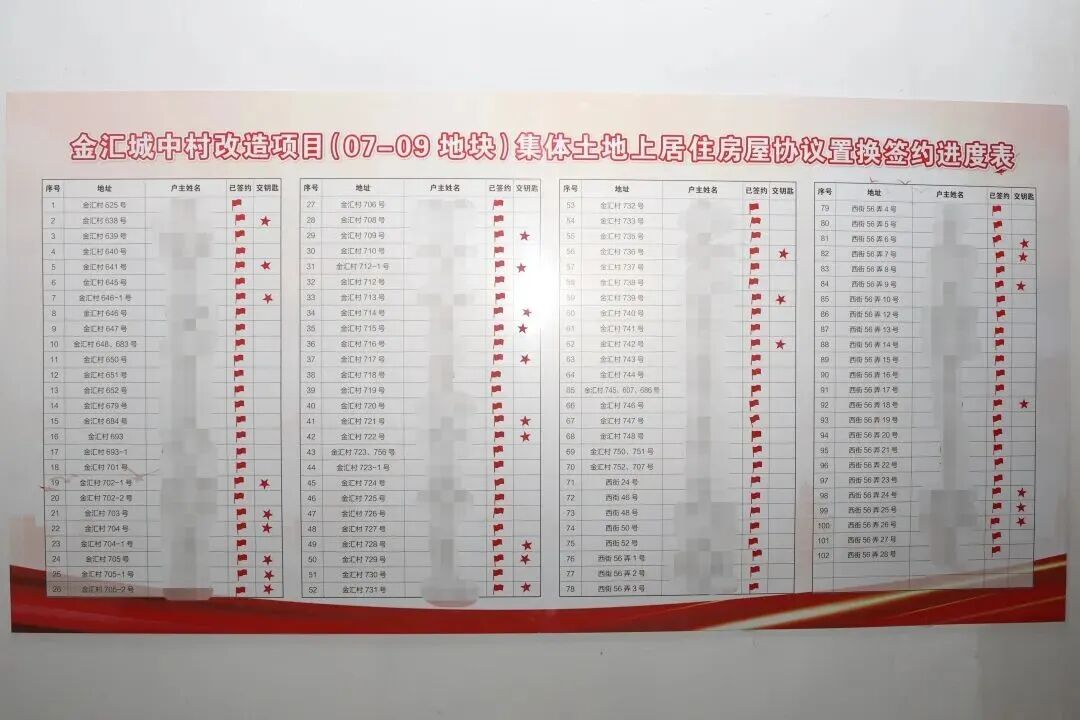 金汇城中村改造项目(07-09地块)集体土地上居住房屋协议置换签约进度表
序号 地址 户主姓名 已签约 交钥匙
1 金汇村 625 号
2 金汇村 638 号
3 金汇村 639 号
4 金汇村 640 号
5 金汇村 641 号
6 金汇村 645 号
7 金汇村 646-1 号
8 金汇村 646 号
9 金汇村 647 号
10 金汇村 648、683 号
11 金汇村 650 号
12 金汇村 651 号
13 金汇村 652 号
14 金汇村 679 号
15 金汇村 684 号
16 金汇村 693
17 金汇村 693-1
18 金汇村 701 号
19 金汇村 702-1 号
20 金汇村 702-2 号
21 金汇村 703 号
22 金汇村 704 号
23 金汇村 704-1 号
24 金汇村 705 号
25 金汇村 705-1 号
26 金汇村 705-2 号
序号 地址 户主姓名 已签约 交钥匙
27 金汇村 706 号
28 金汇村 708 号
29 金汇村 709 号
30 金汇村 710 号
31 金汇村 712-1 号
32 金汇村 712 号
33 金汇村 713 号
34 金汇村 714 号
35 金汇村 715 号
36 金汇村 716 号
37 金汇村 717 号
38 金汇村 718 号
39 金汇村 719 号
40 金汇村 720 号
41 金汇村 721 号
42 金汇村 722 号
43 金汇村 723、756 号
44 金汇村 723-1 号
45 金汇村 724 号
46 金汇村 725 号
47 金汇村 726 号
48 金汇村 727 号
49 金汇村 728 号
50 金汇村 729 号
51 金汇村 730 号
52 金汇村 731 号
序号 地址 户主姓名 已签约 交钥匙
53 金汇村 732 号
54 金汇村 733 号
55 金汇村 735 号
56 金汇村 736 号
57 金汇村 737 号
58 金汇村 738 号
59 金汇村 739 号
60 金汇村 740 号
61 金汇村 741 号
62 金汇村 742 号
63 金汇村 743 号
64 金汇村 744 号
65 金汇村 745、607、686 号
66 金汇村 746 号
67 金汇村 747 号
68 金汇村 748 号
69 金汇村 750、751 号
70 金汇村 752、707 号
71 西街 24 号
72 西街 46 号
73 西街 48 号
74 西街 50 号
75 西街 52 号
76 西街 56 弄 1 号
77 西街 56 弄 2 号
78 西街 56 弄 3 号
序号 地址 户主姓名 已签约 交钥匙
79 西街 56 弄 4 号
80 西街 56 弄 5 号
81 西街 56 弄 6 号
82 西街 56 弄 7 号
83 西街 56 弄 8 号
84 西街 56 弄 9 号
85 西街 56 弄 10 号
86 西街 56 弄 12 号
87 西街 56 弄 13 号
88 西街 56 弄 14 号
89 西街 56 弄 15 号
90 西街 56 弄 16 号
91 西街 56 弄 17 号
92 西街 56 弄 18 号
93 西街 56 弄 19 号
94 西街 56 弄 20 号
95 西街 56 弄 21 号
96 西街 56 弄 22 号
97 西街 56 弄 23 号
98 西街 56 弄 24 号
99 西街 56 弄 25 号
100 西街 56 弄 26 号
101 西街 56 弄 27 号
102 西街 56 弄 28 号